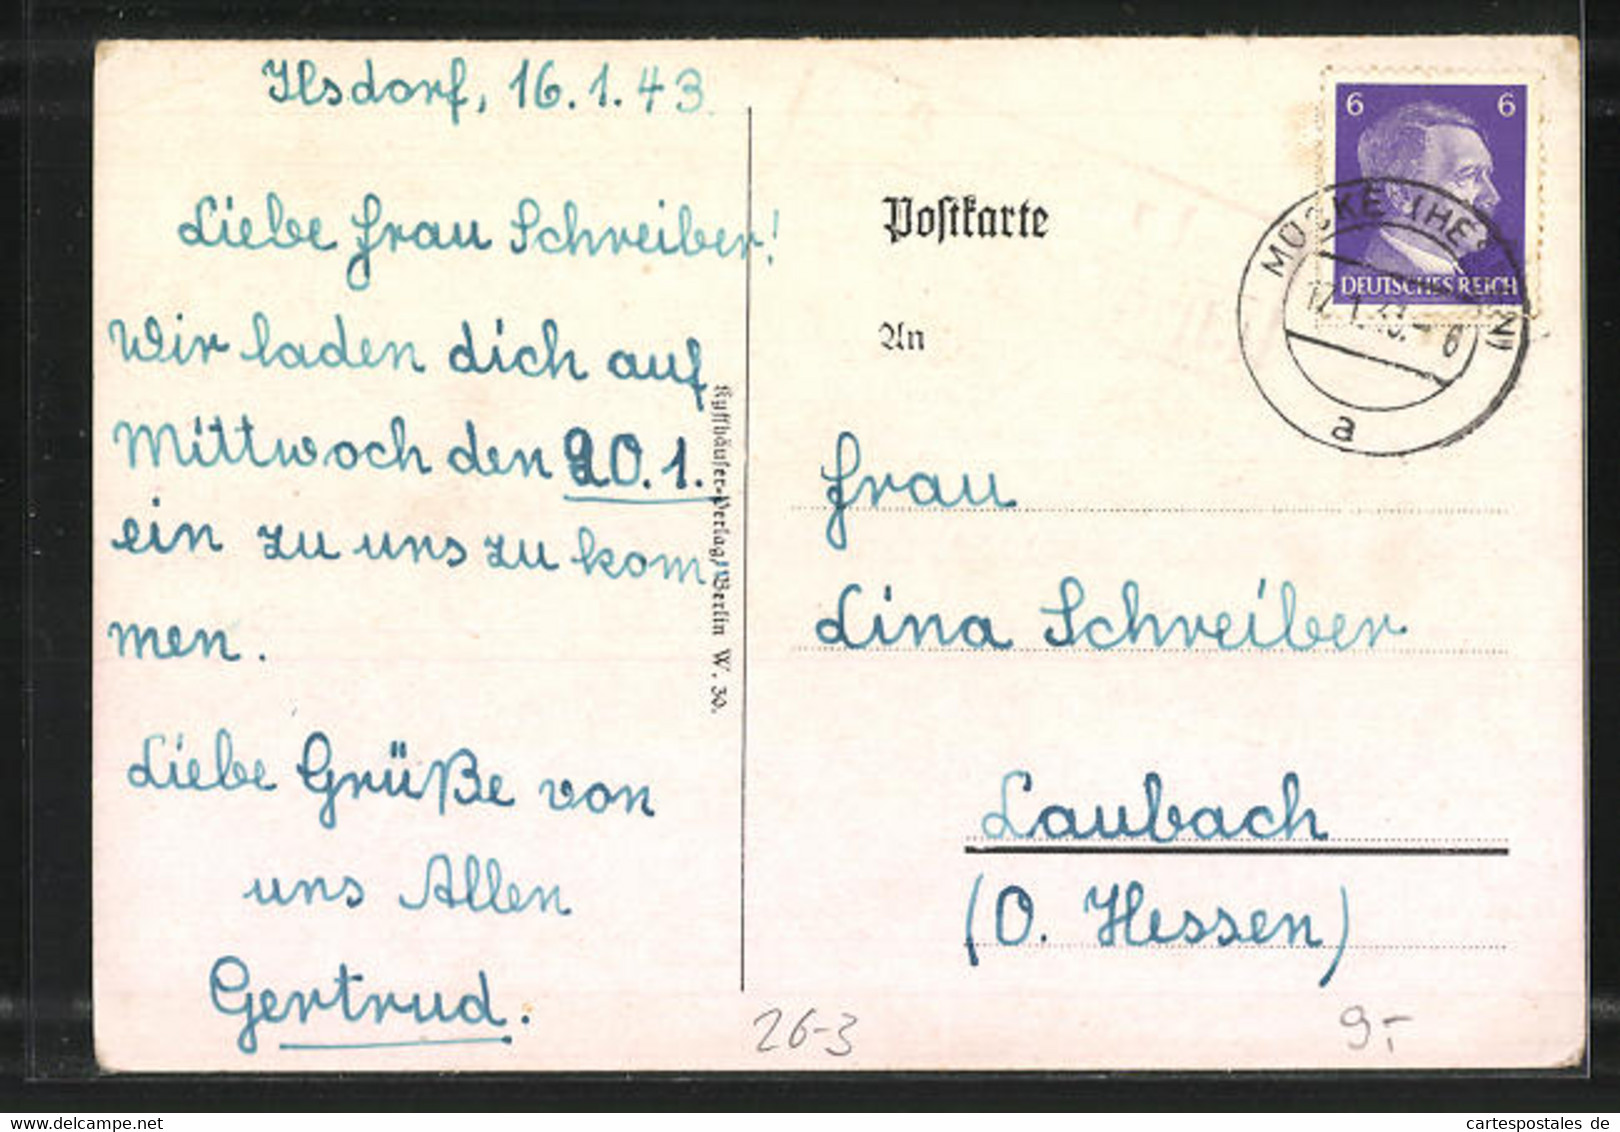 Ilsdorf, 16.1.43
Liebe Frau Schreiber!
Wir laden dich auf
Mittwoch den 20.1.
ein zu uns zu kom
men.
Liebe Grüße von
uns Allen
Gertrud.
Kyffhäuser-Verlag, Berlin W. 30.
Postkarte
An
Frau
Lina Schreiber
Laubach
(O. Hessen)
6 6
DEUTSCHES REICH
MÜCKE (HESSEN)
17.1.43.
a
26-3
9.-
cartespostales de